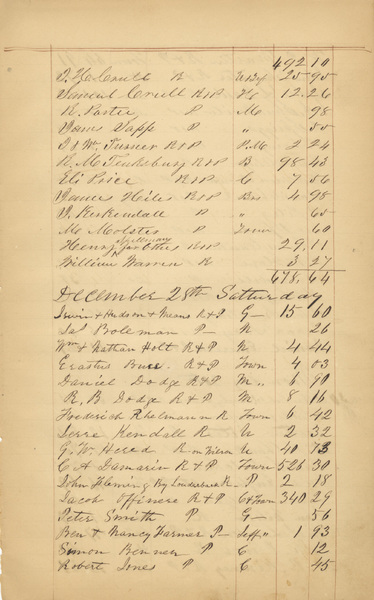 492 10
R 25 95
Samuel Crull R & P 12.26
R. Porter P Mc 98
James P " 50
J & Wm. Turner R & P P.M 2 24
R. Mc Tinksbury R & P B 98 43
Eli Price R & P C 7 56
James Hiles R & P Bro 4 98
J. Kirkendall P " 65
Mc Molster P Town 60
Henry for Ottes R & P 29,11
William Warren R 3 27
678,64
December 28th Satturday
Irwin & Hudson & Means R & P G 15 60
Jas Boleman P N 26
Wm & Nathan Holt R & P N 4 44
Erastus R & P Town 4 03
Daniel Dodge R & P M " 6 90
R, B Dodge R & P M 8 16
Frederich Rhelmann R Town 6 42
Kendall R N 2 32
G. W. Hered R on N 40 13
C A Damarin R & P Town 526 30
John Fleming By Louderback R. P 2 18
Jacob Offinere R & P C & Town 340 29
Peter Smith P G 56
Ben & Nancy Farmer P Jeff " 1 93
Simon Benner P C 12
Robert Jones P C 45